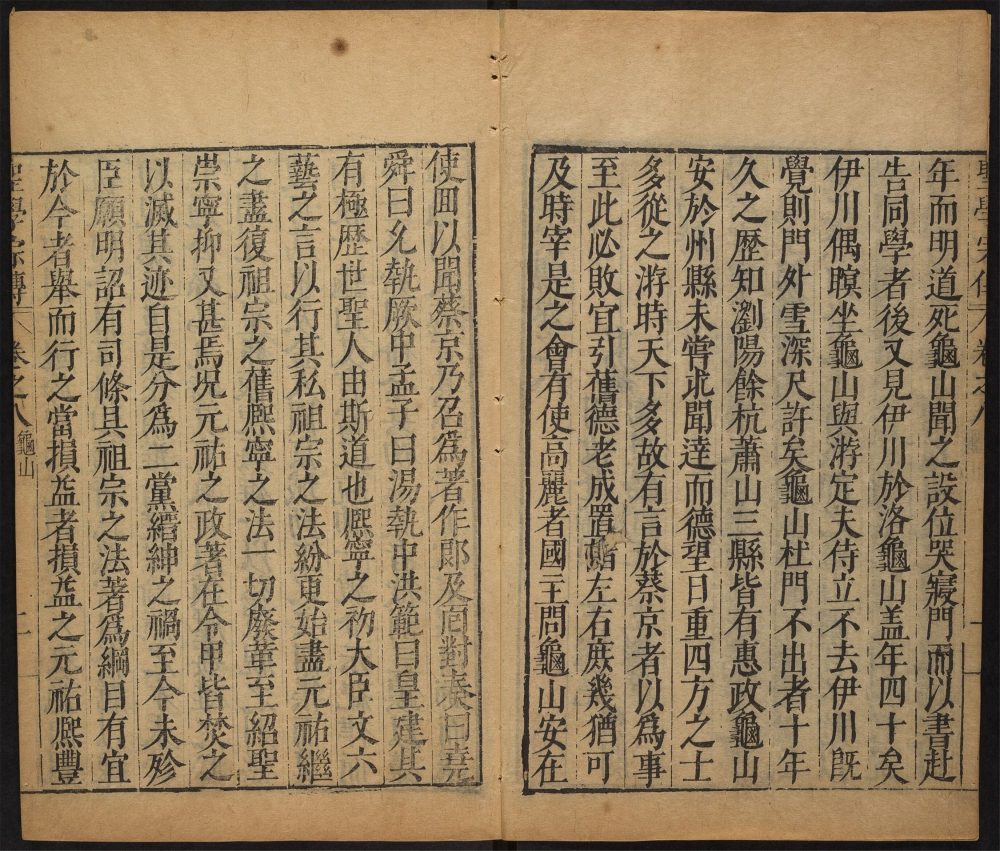 聖學宗傳 卷之八
年而明道死龜山聞之設位哭寢門而以書赴
告同學者後又見伊川於洛龜山盖年四十矣
伊川偶瞑坐龜山與游定夫侍立不去伊川旣
覺則門外雪深尺許矣龜山杜門不出者十年
久之歷知瀏陽餘杭蕭山三縣皆有惠政龜山
安於州縣未嘗求聞達而德望日重四方之士
多從之游時天下多故有言於蔡京者以爲事
至此必敗宜引舊德老成置諸左右庶幾猶可
及時宰是之會有使高麗者國王問龜山安在
使回以聞蔡京乃召爲著作郞及靣對奏曰堯
舜曰允執厥中孟子曰湯執中洪範曰皇建其
有極歷世聖人由斯道也熈寧之初大臣文六
藝之言以行其私祖宗之法紛更始盡元祐繼
之盡復祖宗之舊熈寧之法一切廢革至紹聖
崇寧抑又甚焉凡元祐之政著在令甲皆焚之
以滅其迹自是分爲二黨縉紳之禍至今未殄
臣願明詔有司條具祖宗之法著爲綱目有宜
於今者舉而行之當損益者損益之元祐熈豐
聖學宗傳 卷之八 龜山 十一